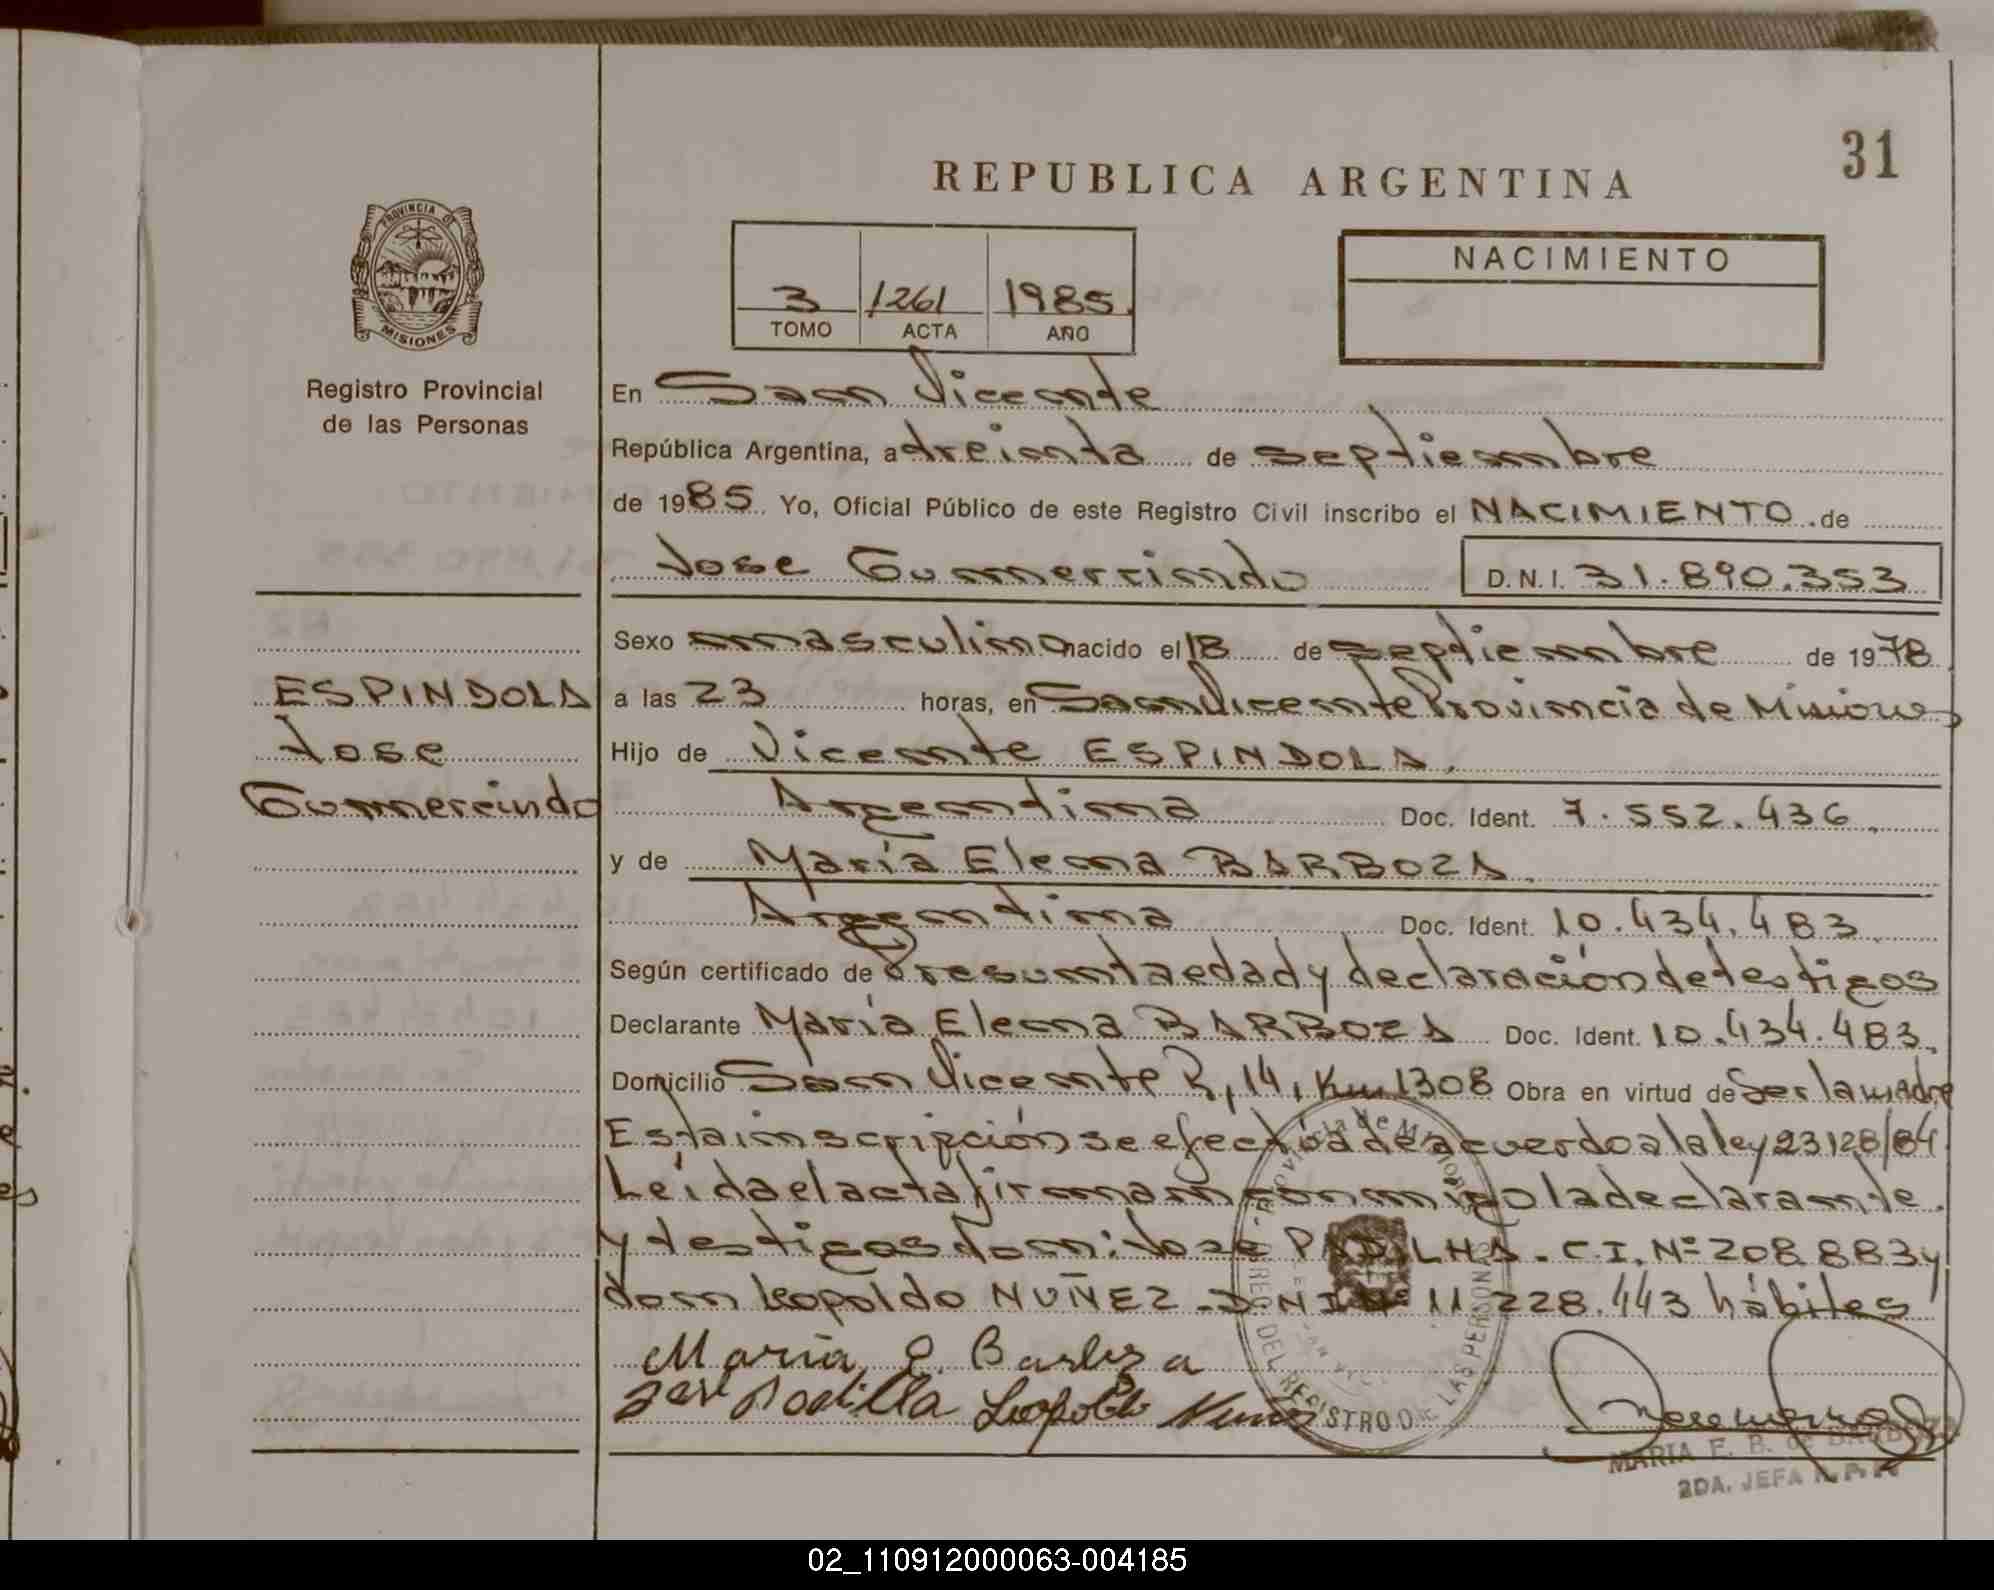 31
REPUBLICA ARGENTINA
PROVINCIA DE
MISIONES
Registro Provincial
de las Personas
3 1261 1985.
TOMO ACTA AÑO
NACIMIENTO
En San Vicente
República Argentina, a treinta de septiembre
de 1985. Yo, Oficial Público de este Registro Civil inscribo el NACIMIENTO de
Jose Gumercindo D.N.I. 31.890.353
Sexo masculino nacido el 18 de septiembre de 1978
ESPINDOLA
Jose
Gumercindo
a las 23 horas, en San Vicente Provincia de Misiones
Hijo de Vicente ESPINDOLA.
Argentina Doc. Ident. 7.552.436.
y de María Elena BARBOZA.
Argentina Doc. Ident. 10.434.483
Según certificado de Presunta edad y declaración de testigos
Declarante María Elena BARBOZA Doc. Ident. 10.434.483.
Domicilio San Vicente R, 14, Km 1308 Obra en virtud de Ser la madre
Esta inscripción se efectúa de acuerdo a la ley 23128/84.
Leída el acta firman conmigo la declarante.
y testigos don: José PADILHA - C.I. Nº 208.883 y
don Leopoldo NUÑEZ - D.N.I. Nº 11.228.443 hábiles
María E Barboza
José Padilla Leopoldo Nuñes
DEL REGISTRO DE LAS PERSONAS
MARIA F. B. de BARBOZA
2DA. JEFA
02_110912000063-004185